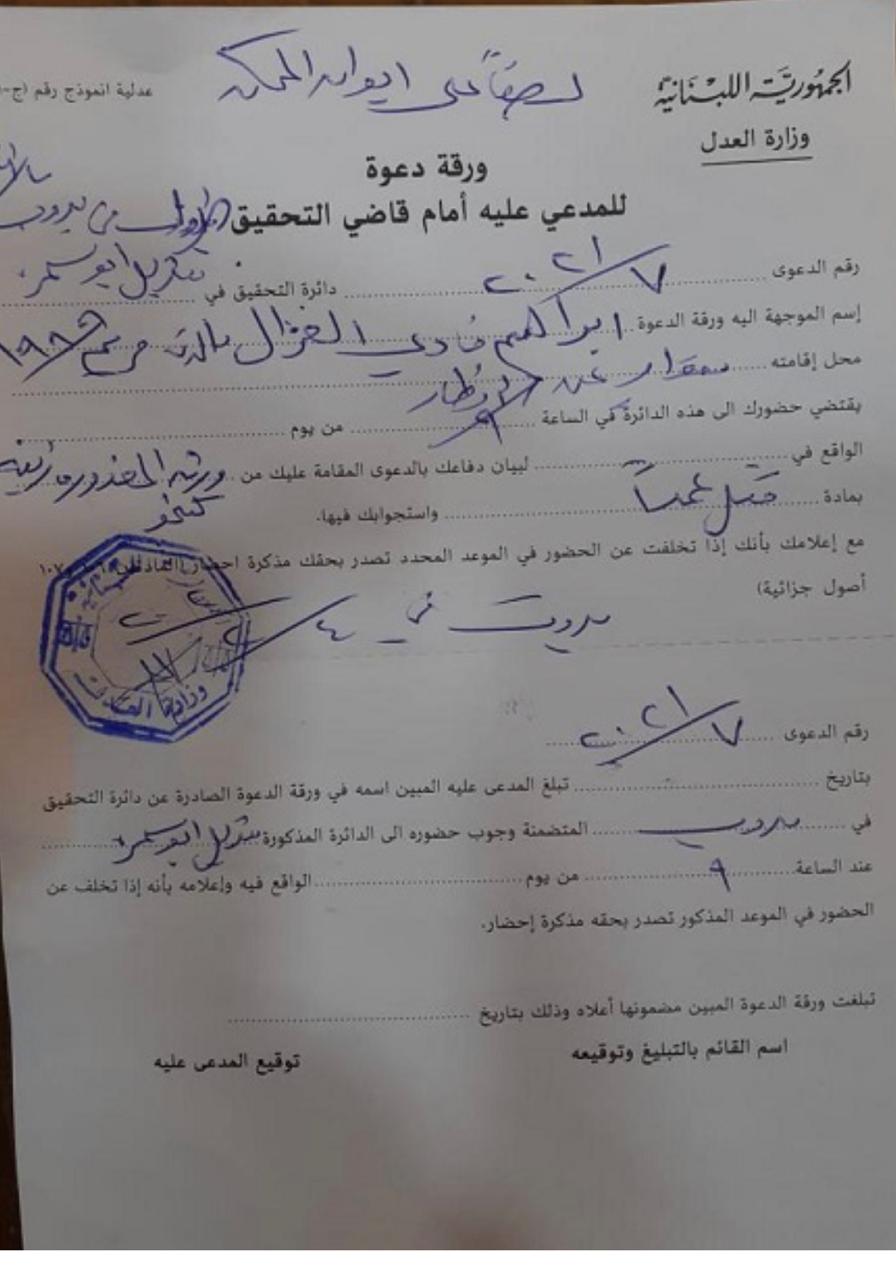 الجمهورية اللبنانية
وزارة العدل
عدلية انموذج رقم (ج-
لصقاً على ايوان المحكمة
ورقة دعوة
للمدعي عليه أمام قاضي التحقيق الاول في بيروت
رقم الدعوى ٧/٢٠٢١ دائرة التحقيق في
شربل ابو سمرا
إسم الموجهة اليه ورقة الدعوة ابراهيم فادي الغزال والدته مريم ١٩٨٩
محل إقامته متوار عن الانظار
يقتضي حضورك الى هذه الدائرة في الساعة ٩ من يوم
الواقع في لبيان دفاعك بالدعوى المقامة عليك من ورثة المغدورة زينة كنجو
بمادة قتل عمداً واستجوابك فيها.
مع إعلامك بأنك إذا تخلفت عن الحضور في الموعد المحدد تصدر بحقك مذكرة احضار
أصول جزائية)
بيروت في ٤
وزارة العدل
رقم الدعوى ٧/٢٠٢١
بتاريخ تبلغ المدعى عليه المبين اسمه في ورقة الدعوة الصادرة عن دائرة التحقيق
في بيروت المتضمنة وجوب حضوره الى الدائرة المذكورة شربل ابو سمرا
عند الساعة ٩ من يوم الواقع فيه وإعلامه بأنه إذا تخلف عن
الحضور في الموعد المذكور تصدر بحقه مذكرة إحضار.
تبلغت ورقة الدعوة المبين مضمونها أعلاه وذلك بتاريخ
اسم القائم بالتبليغ وتوقيعه
توقيع المدعى عليه